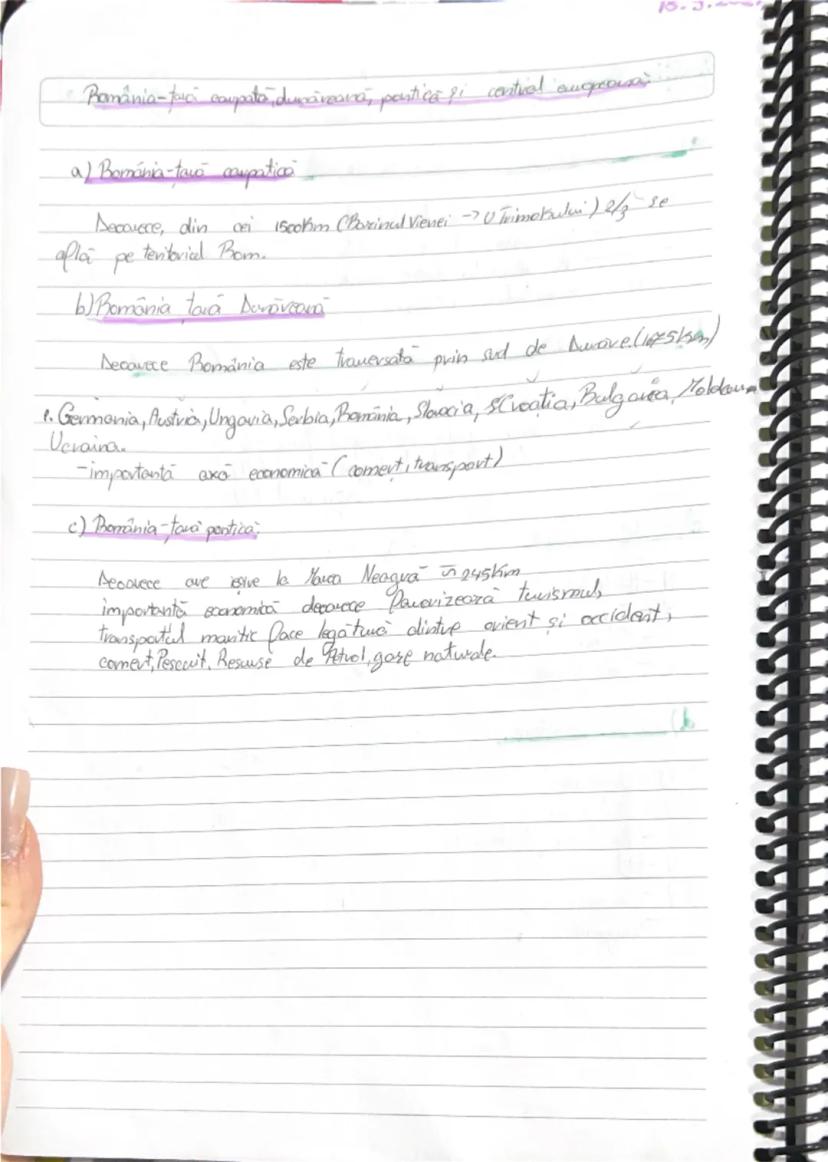 România-țară carpată, dunăreană, pontică și central europeană
a) România-țară carpatică
Deoarece, din cei 1500km (Bazinul Vienei -> V Timokului) 2/3 se
află pe teritoriul Rom.
b) România țară Dunăreană
Deoarece România este traversată prin sud de Dunăre (1075km)
Germania, Austria, Ungaria, Serbia, România, Slovacia, Croatia, Bulgaria, Moldova
Ucraina.
-importantă axă economică (comerț, transport)
c) România-țară pontică,
Deoarece are ieșire la Marea Neagră ≈ 245km
importantă economică deoarece favorizează turismul,
transportul maritic face legătură dintre orient și occident,
comerț, Pescuit, Resurse de Petrol, gaze naturale.